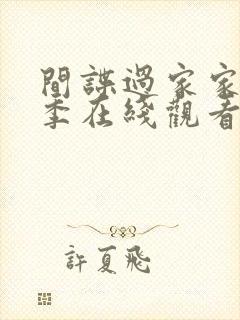 間諜過家家
季在綫觀看
許夏飛